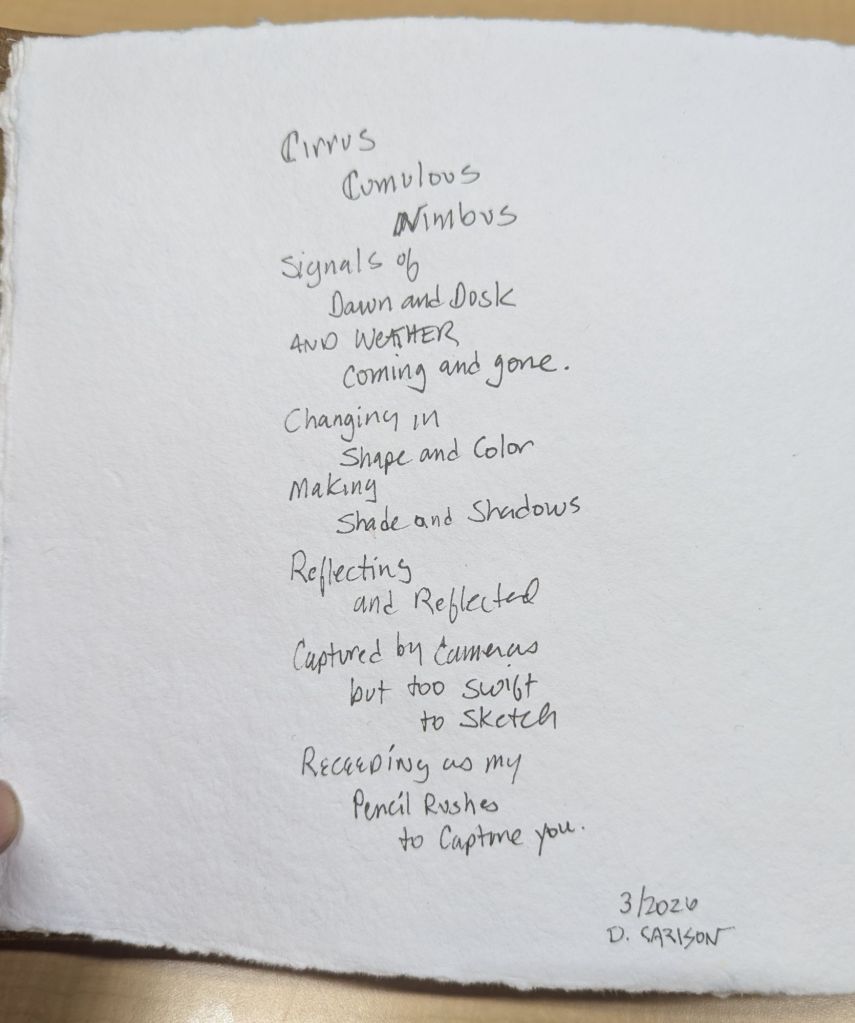 Cirrus
Cumulous
Nimbus
Signals of
Dawn and Dusk
AND WEATHER
Coming and gone.
Changing in
Shape and Color
Making
Shade and Shadows
Reflecting
and Reflected
Captured by Cameras
but too swift
to Sketch
Receeding as my
Pencil Rushes
to Capture you.
3/2026
D.